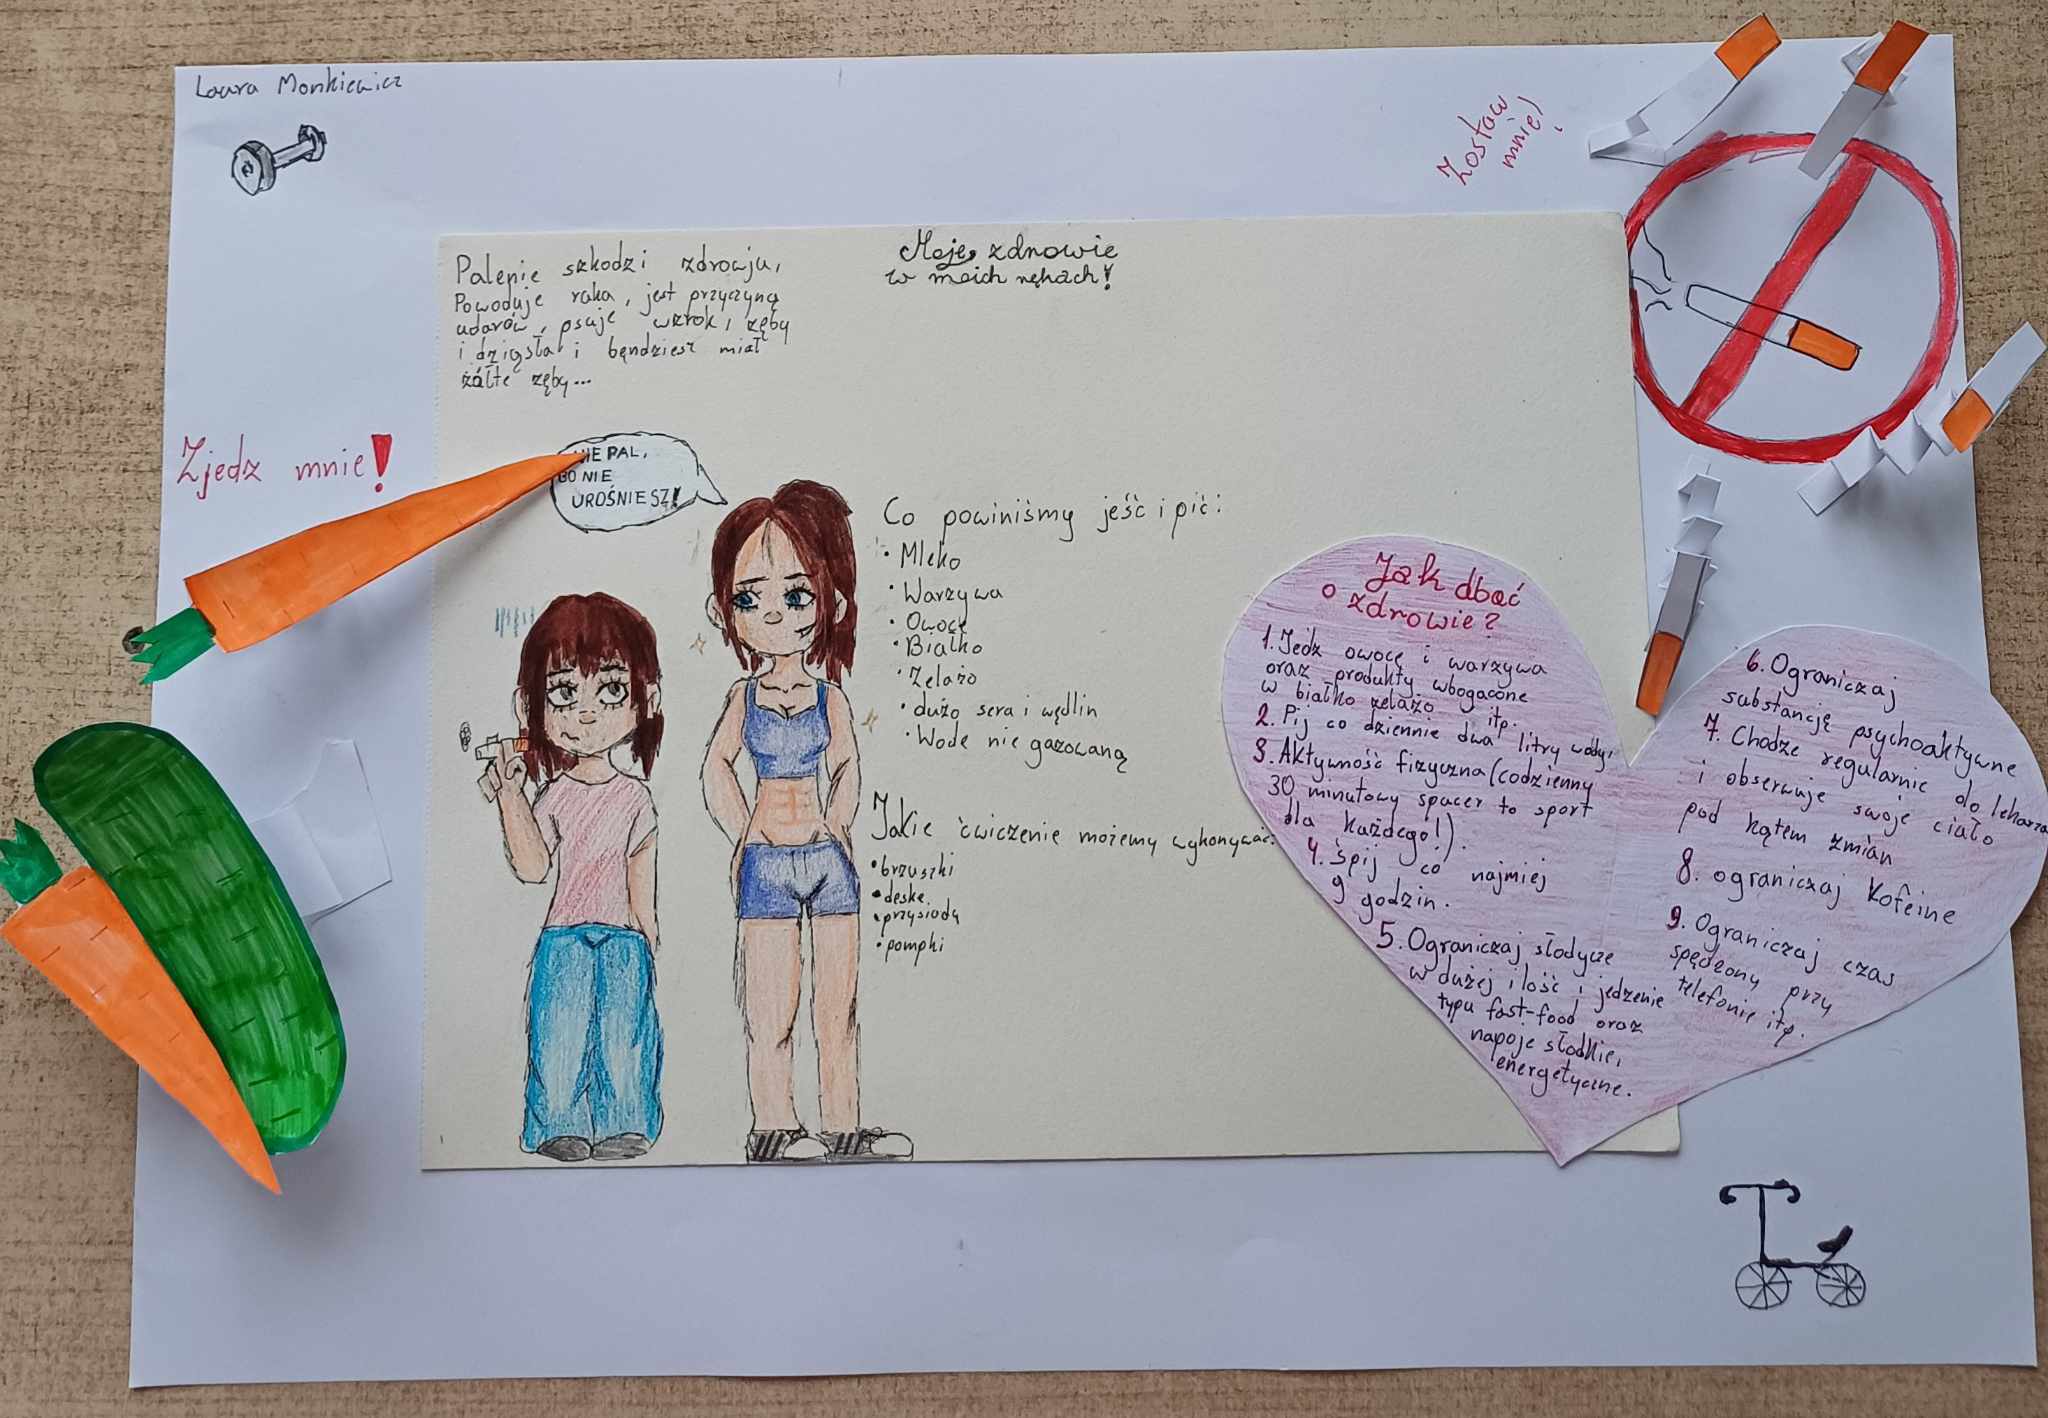 Laura Monkiewicz
Zostaw
mnie!
Palenie szkodzi zdrowju,
Powoduje raka, jest przyczyną
udarów, psuje wzrok, zęby
i dziąsła i bęndziesz miał
żółte zęby...
Moję zdrowie
w moich rękach!
Zjedz mnie!
NIE PAL,
BO NIE
UROŚNIESZ!
Co powiniśmy jeść i pić:
• Mleko
• Warzywa
• Owocę
• Białko
• Żelazo
• dużo sera i wędlin
• Wode nie gazowaną
Jakie ćwiczenie możemy wykonywać:
• brzuszki
• deskę
• przysiady
• pompki
Jak dbać
o zdrowie?
1. Jedz owocę i warzywa
oraz produkty wbogacone
w białko żelazo itp.
2. Pij co dziennie dwa litry wody,
3. Aktywność fizyczna (codzienny
30 minutowy spacer to sport
dla każdego!).
4. Śpij co najmiej
9 godzin.
5. Ograniczaj słodycze
w dużej ilość i jedzenie
typu fast-food oraz
napoje słodkie,
energetyczne.
6. Ograniczaj
substancję psychoaktywne
7. Chodze regularnie do lekarza
i obserwuje swoje ciało
pod kątem zmian
8. ograniczaj kofeine
9. Ograniczaj czas
spędzony przy
telefonie itp.